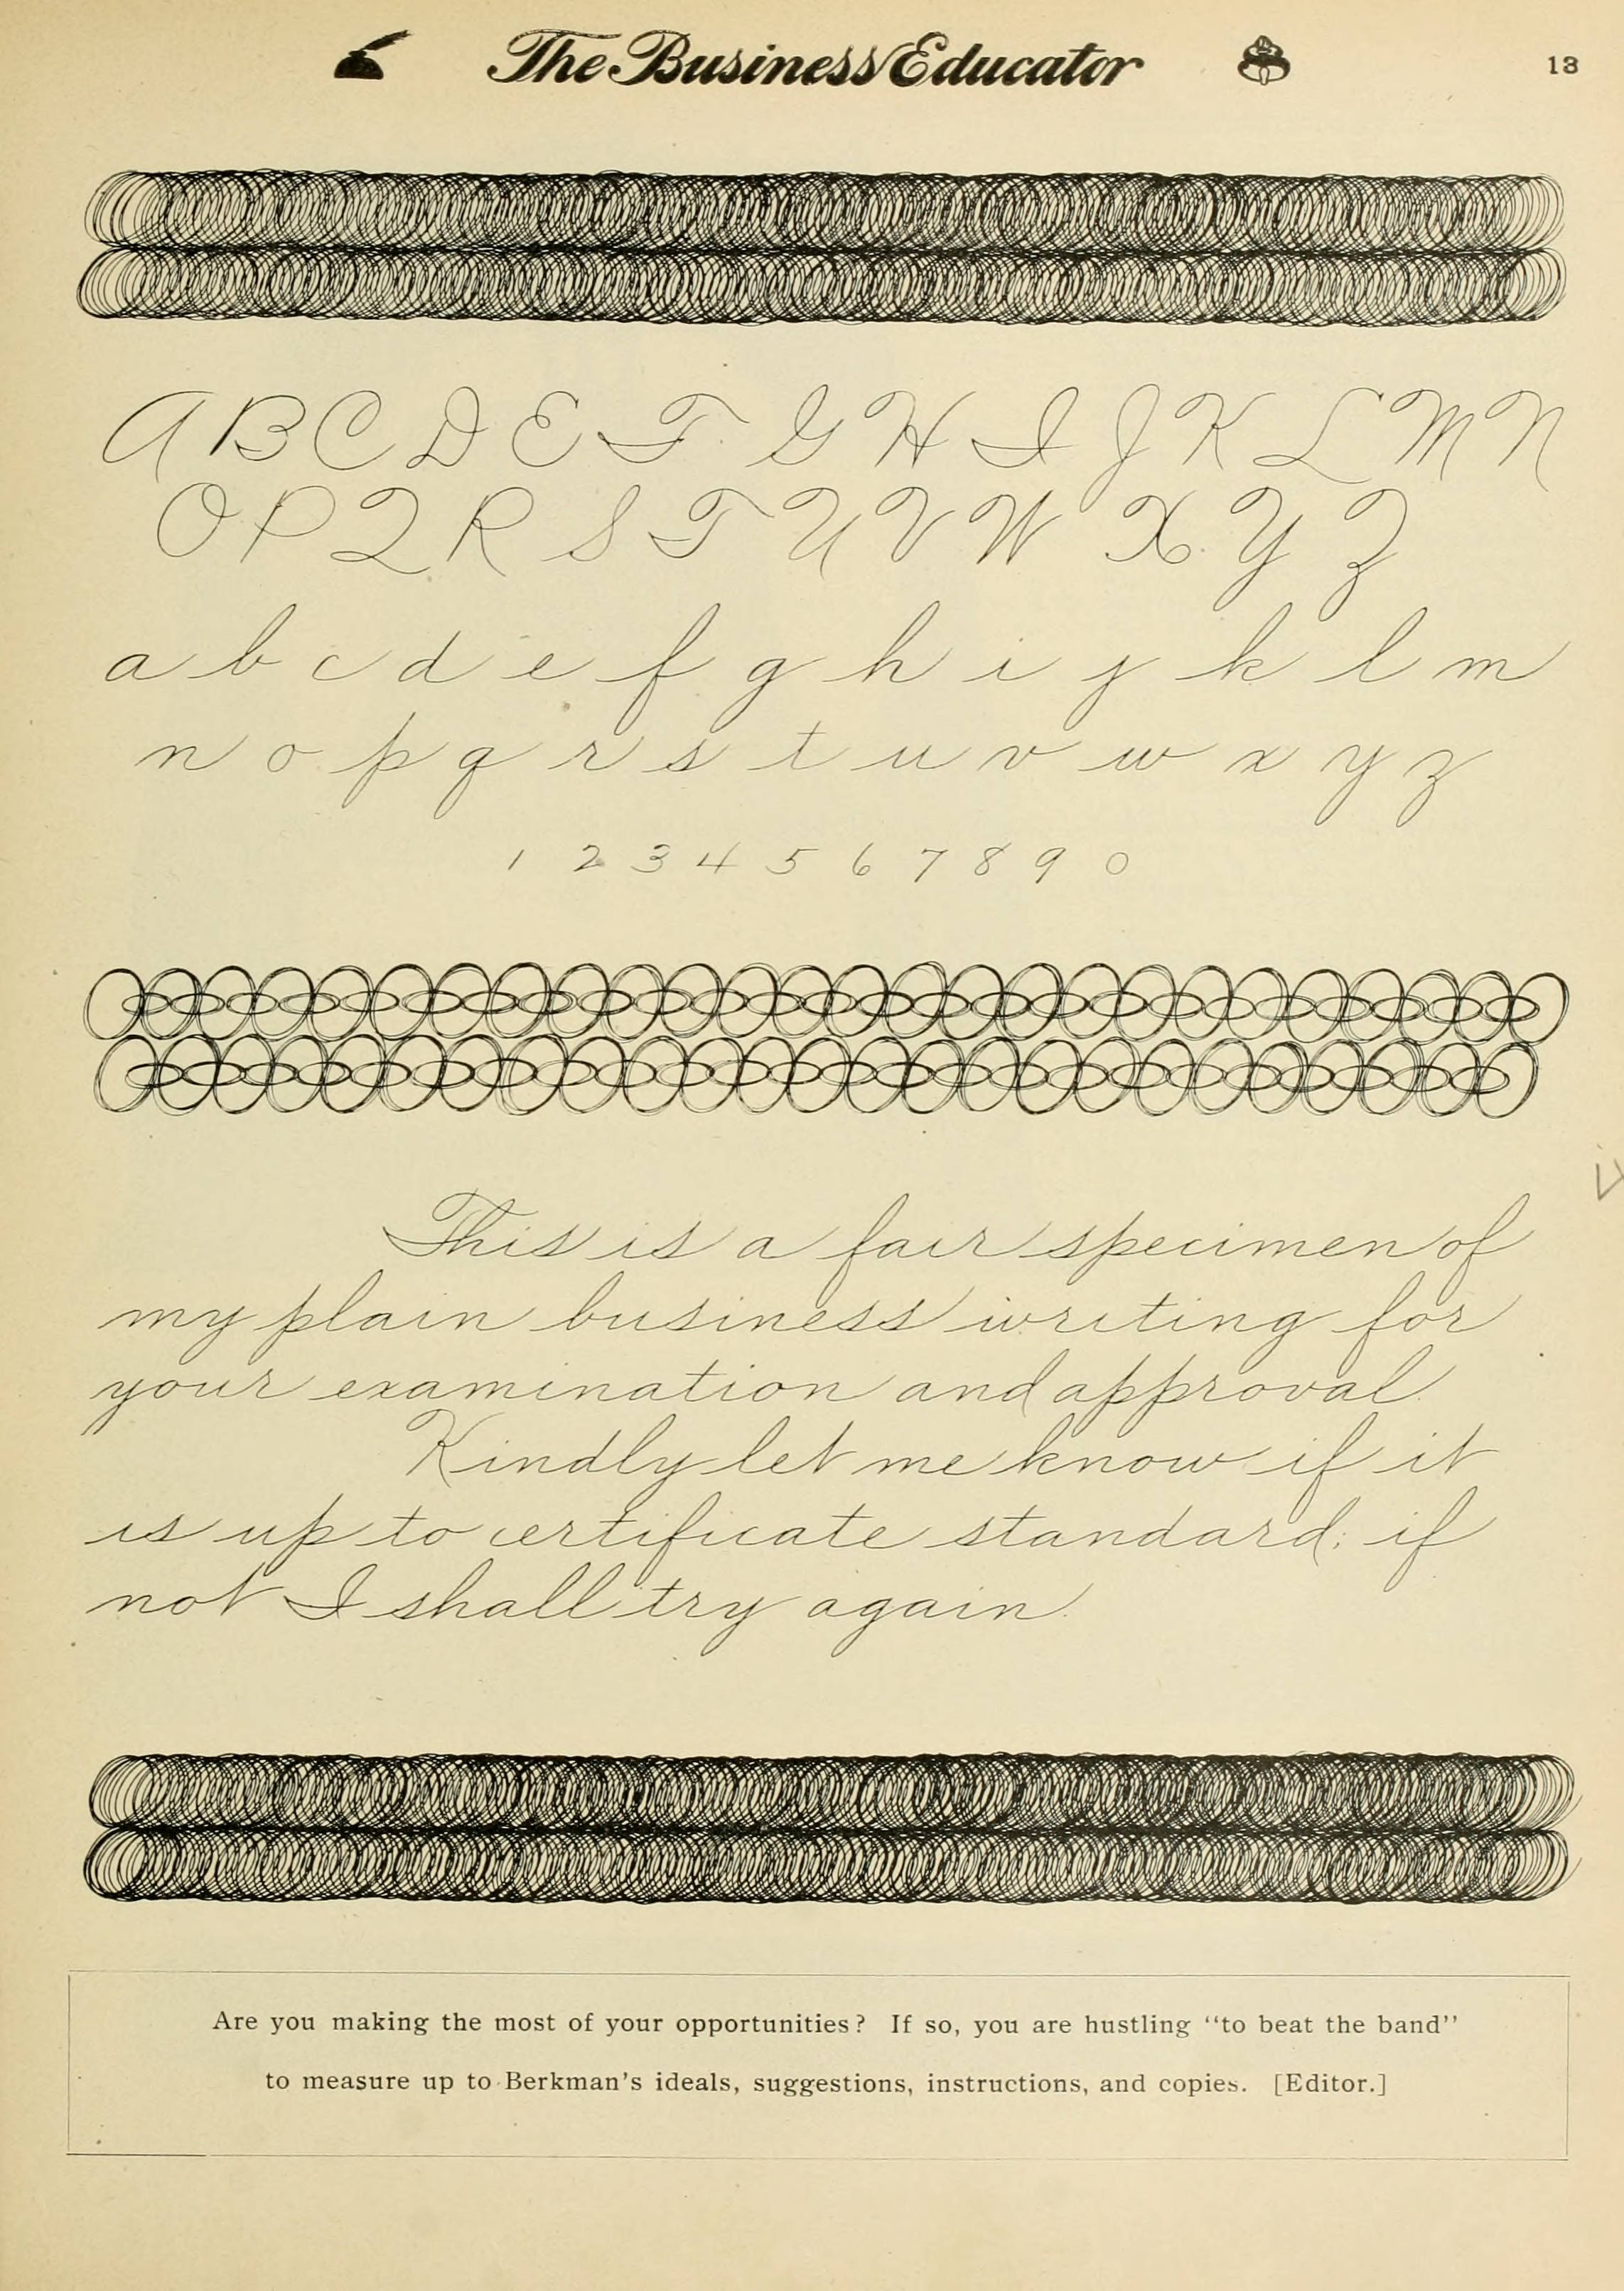 The Business Educator 13
A B C D E F G H I J K L M N
O P Q R S T U V W X Y Z
a b c d e f g h i j k l m
n o p q r s t u v w x y z
1 2 3 4 5 6 7 8 9 0
This is a fair specimen of
my plain business writing for
your examination and approval.
Kindly let me know if it
is up to certificate standard; if
not I shall try again.
Are you making the most of your opportunities? If so, you are hustling "to beat the band"
to measure up to Berkman's ideals, suggestions, instructions, and copies. [Editor.]